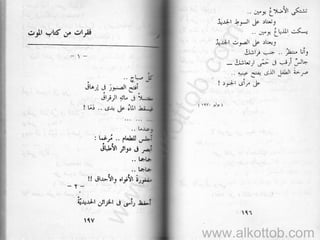 تشتكى الأضلاعُ يومين ..
وتعتاد على السوط الجديدْ
يسكت المذياعُ يومين ..
ويعتاد على الصوت الجديدْ
وأنا منتظرٌ .. جنب فراشكْ
جالسٌ أرقب فى حُمَّى ارتعاشكْ ــ
صرخة الطفل الذى يفتح عينيه ..
على مرأى الجنود !
١٩٦
فقرات من كتاب الموت
ــ ١ ــ
كلَّ صباح ..
أفتح الصنبورَ فى إرهاقْ
مغتسلاً فى مائِه الرقراقْ
فيسقط الماءُ على يدى .. دَمَا !
وعندما ..
أجلس للطعام .. مُرغما :
أبصر فى دوائر الأطباقْ
جماجما ..
جماجما ..
مفغورة الأفواه والأحداق !!
ــ ٢ ــ
أحفظ رأسى فى الخزائن الحديديَّهْ
١٩٧
www.alkottob.com
www.alkottob.com